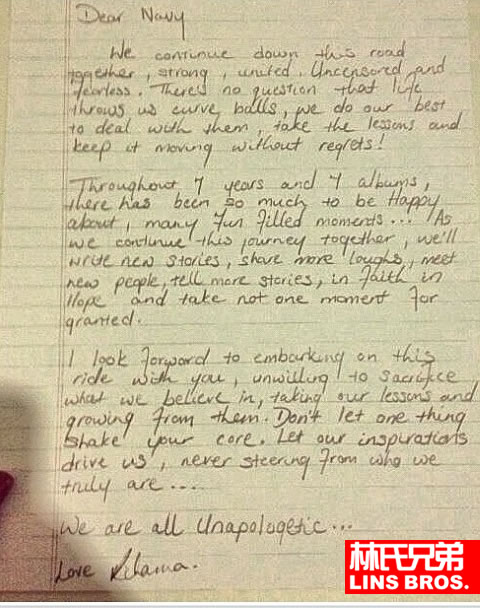 Dear Navy
We continue down this road
together, strong, united. Uncensored and
fearless. There's no question that life
throws us curve balls, we do our best
to deal with them, take the lessons and
keep it moving without regrets!
Throughout 7 years and 7 albums,
there has been so much to be Happy
about, many fun filled moments... As
we continue this journey together, we'll
write new stories, share more laughs, meet
new people, tell more stories, in Faith in
Hope and take not one moment for
granted.
I look forward to embarking on this
ride with you, unwilling to sacrifice
what we believe in, taking our lessons and
growing from them. Don't let one thing
shake your core. Let our inspirations
drive us, never steering from who we
truly are....
We are all Unapologetic...
Love
林氏兄弟
LINS BROS.